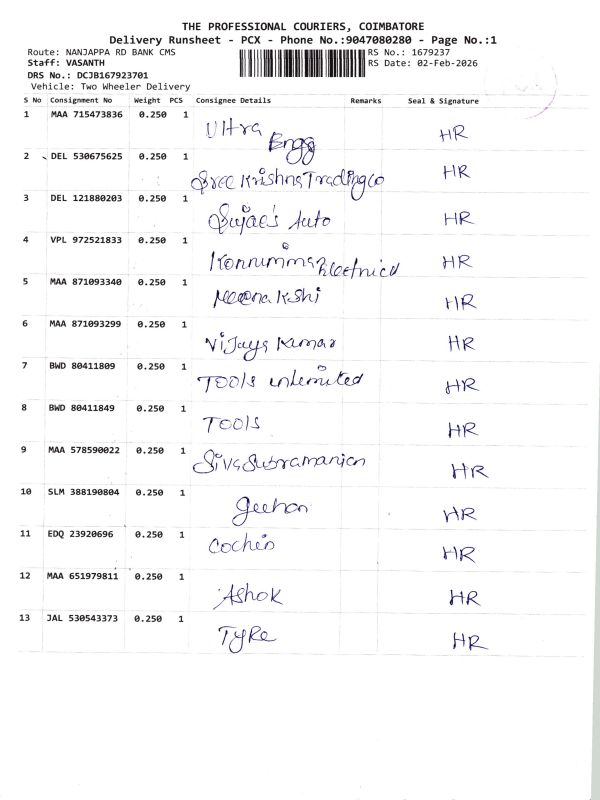 THE PROFESSIONAL COURIERS, COIMBATORE
Delivery Runsheet - PCX - Phone No.:9047080280 - Page No.:1
Route: NANJAPPA RD BANK CMS RS No.: 1679237
Staff: VASANTH RS Date: 02-Feb-2026
DRS No.: DCJB167923701
Vehicle: Two Wheeler Delivery
S No Consignment No Weight PCS Consignee Details Remarks Seal & Signature
1 MAA 715473836 0.250 1 Ultra Engg HR
2 DEL 530675625 0.250 1 Sree Krishna Trading co HR
3 DEL 121880203 0.250 1 Sujae's Auto HR
4 VPL 972521833 0.250 1 HR
5 MAA 871093340 0.250 1 Meenakshi HR
6 MAA 871093299 0.250 1 Vijaya Kumar HR
7 BWD 80411809 0.250 1 TOOls unlimited HR
8 BWD 80411849 0.250 1 TOOls HR
9 MAA 578590022 0.250 1 Sivasubramanian HR
10 SLM 388190804 0.250 1 Geehan HR
11 EDQ 23920696 0.250 1 Cochin HR
12 MAA 651979811 0.250 1 Ashok HR
13 JAL 530543373 0.250 1 TyRe HR